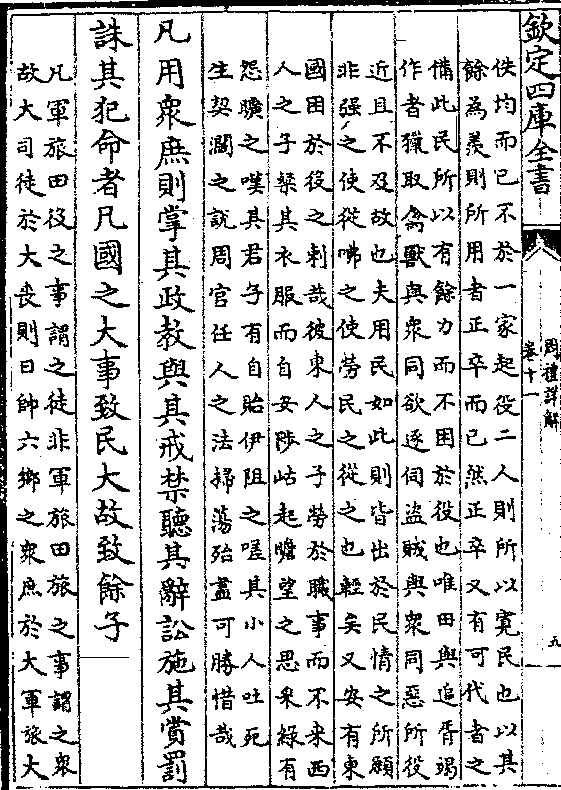 欽定四庫全書
周禮詳解
卷十一
五
佚均而已不於一家起役二人則所以寛民也以其
餘為羨則所用者正卒而已然正卒又有可代者之
備此民所以有餘力而不困於役也唯田與追胥竭
作者獵取禽獸與衆同欲逐伺盗賊與衆同惡所役
近且不及故也夫用民如此則皆出於民情之所願
非强之使從咈之使勞民之從之也輕矣又安有東
國困於役之刺哉彼東人之子勞於職事而不來西
人之子粲其衣服而自安陟岵起瞻望之思采緑有
怨曠之嘆其君子有自貽伊阻之嗟其小人吐死
生契濶之説周官任人之法掃蕩殆盡可勝惜哉
凡用衆庶則掌其政教與其戒禁聽其辭訟施其賞罰
誅其犯命者凡國之大事致民大故致餘子
凡軍旅田役之事謂之徒非軍旅田旅之事謂之衆
故大司徒於大喪則曰帥六鄉之衆庶於大軍旅大